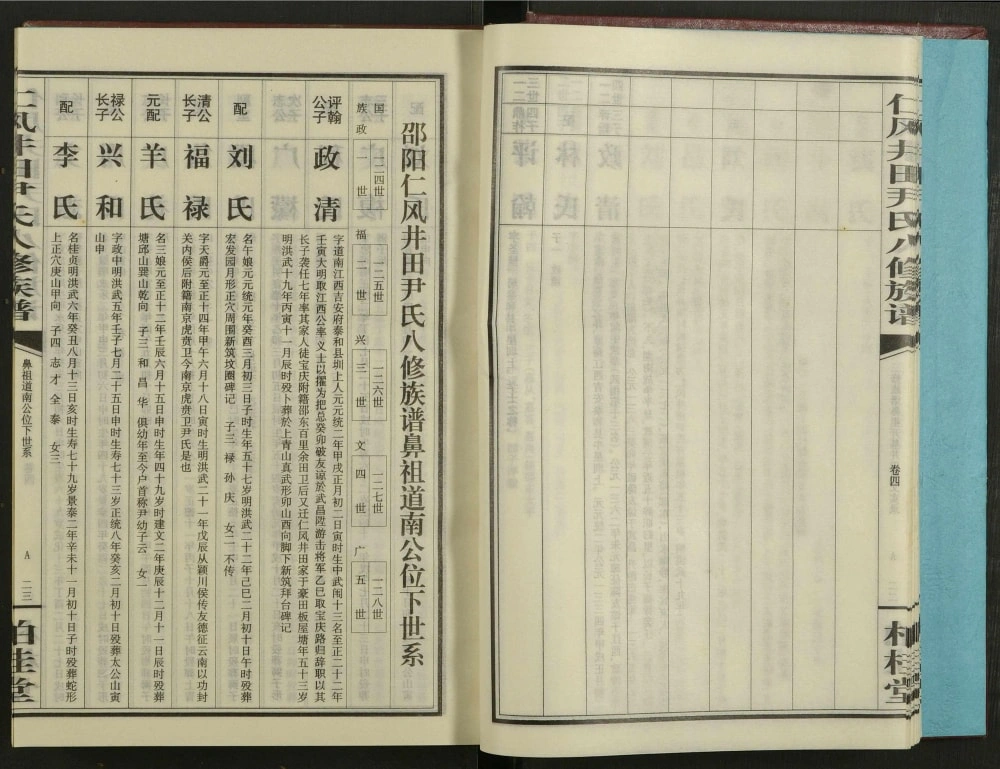 仁风井田尹氏八修族谱
卷四
柏桂堂
邵阳仁风井田尹氏八修族谱鼻祖道南公位下世系
国 一二四世 一二五世 一二六世 一二七世 一二八世
族 政一世 福二世 兴三世 文四世 广五世
评翰公子 政清
字道南江西吉安府泰和县圳上人元元统二年甲戌正月初二日寅时生中武闱十三名至正二十二年
壬寅大明取江西公率义士以擢为把总癸卯破友谅於武昌陞游击将军乙巳取宝庆路归辞职以其
长子袭任七年率其家人徒宝庆附籍邵东百里余田卫后又迁仁风井田家于豪田板屋塘年五十三岁
明洪武十九年丙寅十一月辰时殁卜葬於上青山真武形卯山酉向脚下新筑拜台碑记
配 刘氏
名午娘元元统元年癸酉三月初三日子时生年五十七岁明洪武二十二年己巳二月初十日午时殁葬
宏发园月形正穴周围新筑坟圈碑记 子三 禄 孙 庆 女二 不传
清公长子 福禄
字天爵元至正十四年甲午六月十八日寅时生明洪武二十一年戊辰从颖川侯传友德征云南以功封
关内侯后附籍南京虎贲卫今南京虎贲卫尹氏是也
元配 羊氏
名三娘元至正十二年壬辰六月十五日申时生年四十九岁时建文二年庚辰十二月十一日辰时殁葬
塘邱山巽山乾向 子三 和 昌 华 俱幼年至今户首称尹幼子云 女一
禄公长子 兴和
字政中明洪武五年壬子七月二十五日申时生寿七十三岁正统八年癸亥二月初十日殁葬太公山寅
山申
配 李氏
名桂贞明洪武六年癸丑八月十三日亥时生寿七十九岁景泰二年辛未十一月初十日子时殁葬蛇形
上正穴庚山甲向 子四 志 才 全 泰 女三
仁风井田尹氏八修族谱
鼻祖道南公位下世系
A 二三
柏桂堂